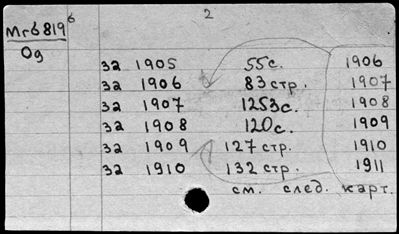 2
Мгб 819⁶
Од
за 1905 55с. 1906
за 1906 83 стр. 1907
за 1907 1253с. 1908
за 1908 120с. 1909
за 1909 127 стр. 1910
за 1910 132 стр. 1911
см. след. карт.